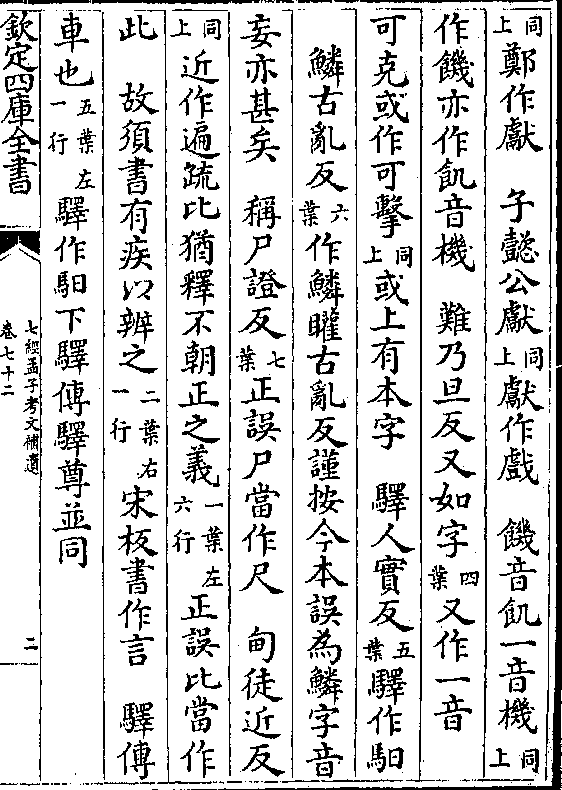 同上鄭作獻　子懿公獻同上獻作戲　饑音飢一音機同上
作饑亦作飢音機　難乃旦反又如字四葉又作一音
可克或作可擊同上或上有本字　驛人實反五葉驛作馹
鱗古亂反六葉作鱗矔古亂反謹按今本誤為鱗字音
妄亦甚矣　稱尸證反七葉正誤尸當作尺　甸徒近反
同上近作遍疏比猶釋不朝正之義一葉左六行正誤比當作
此　故須書有疾以辨之二葉右一行宋板書作言　驛傳
車也五葉左一行驛作馹下驛傳驛尊並同
欽定四庫全書
七經孟子考文補遺
卷七十二
二